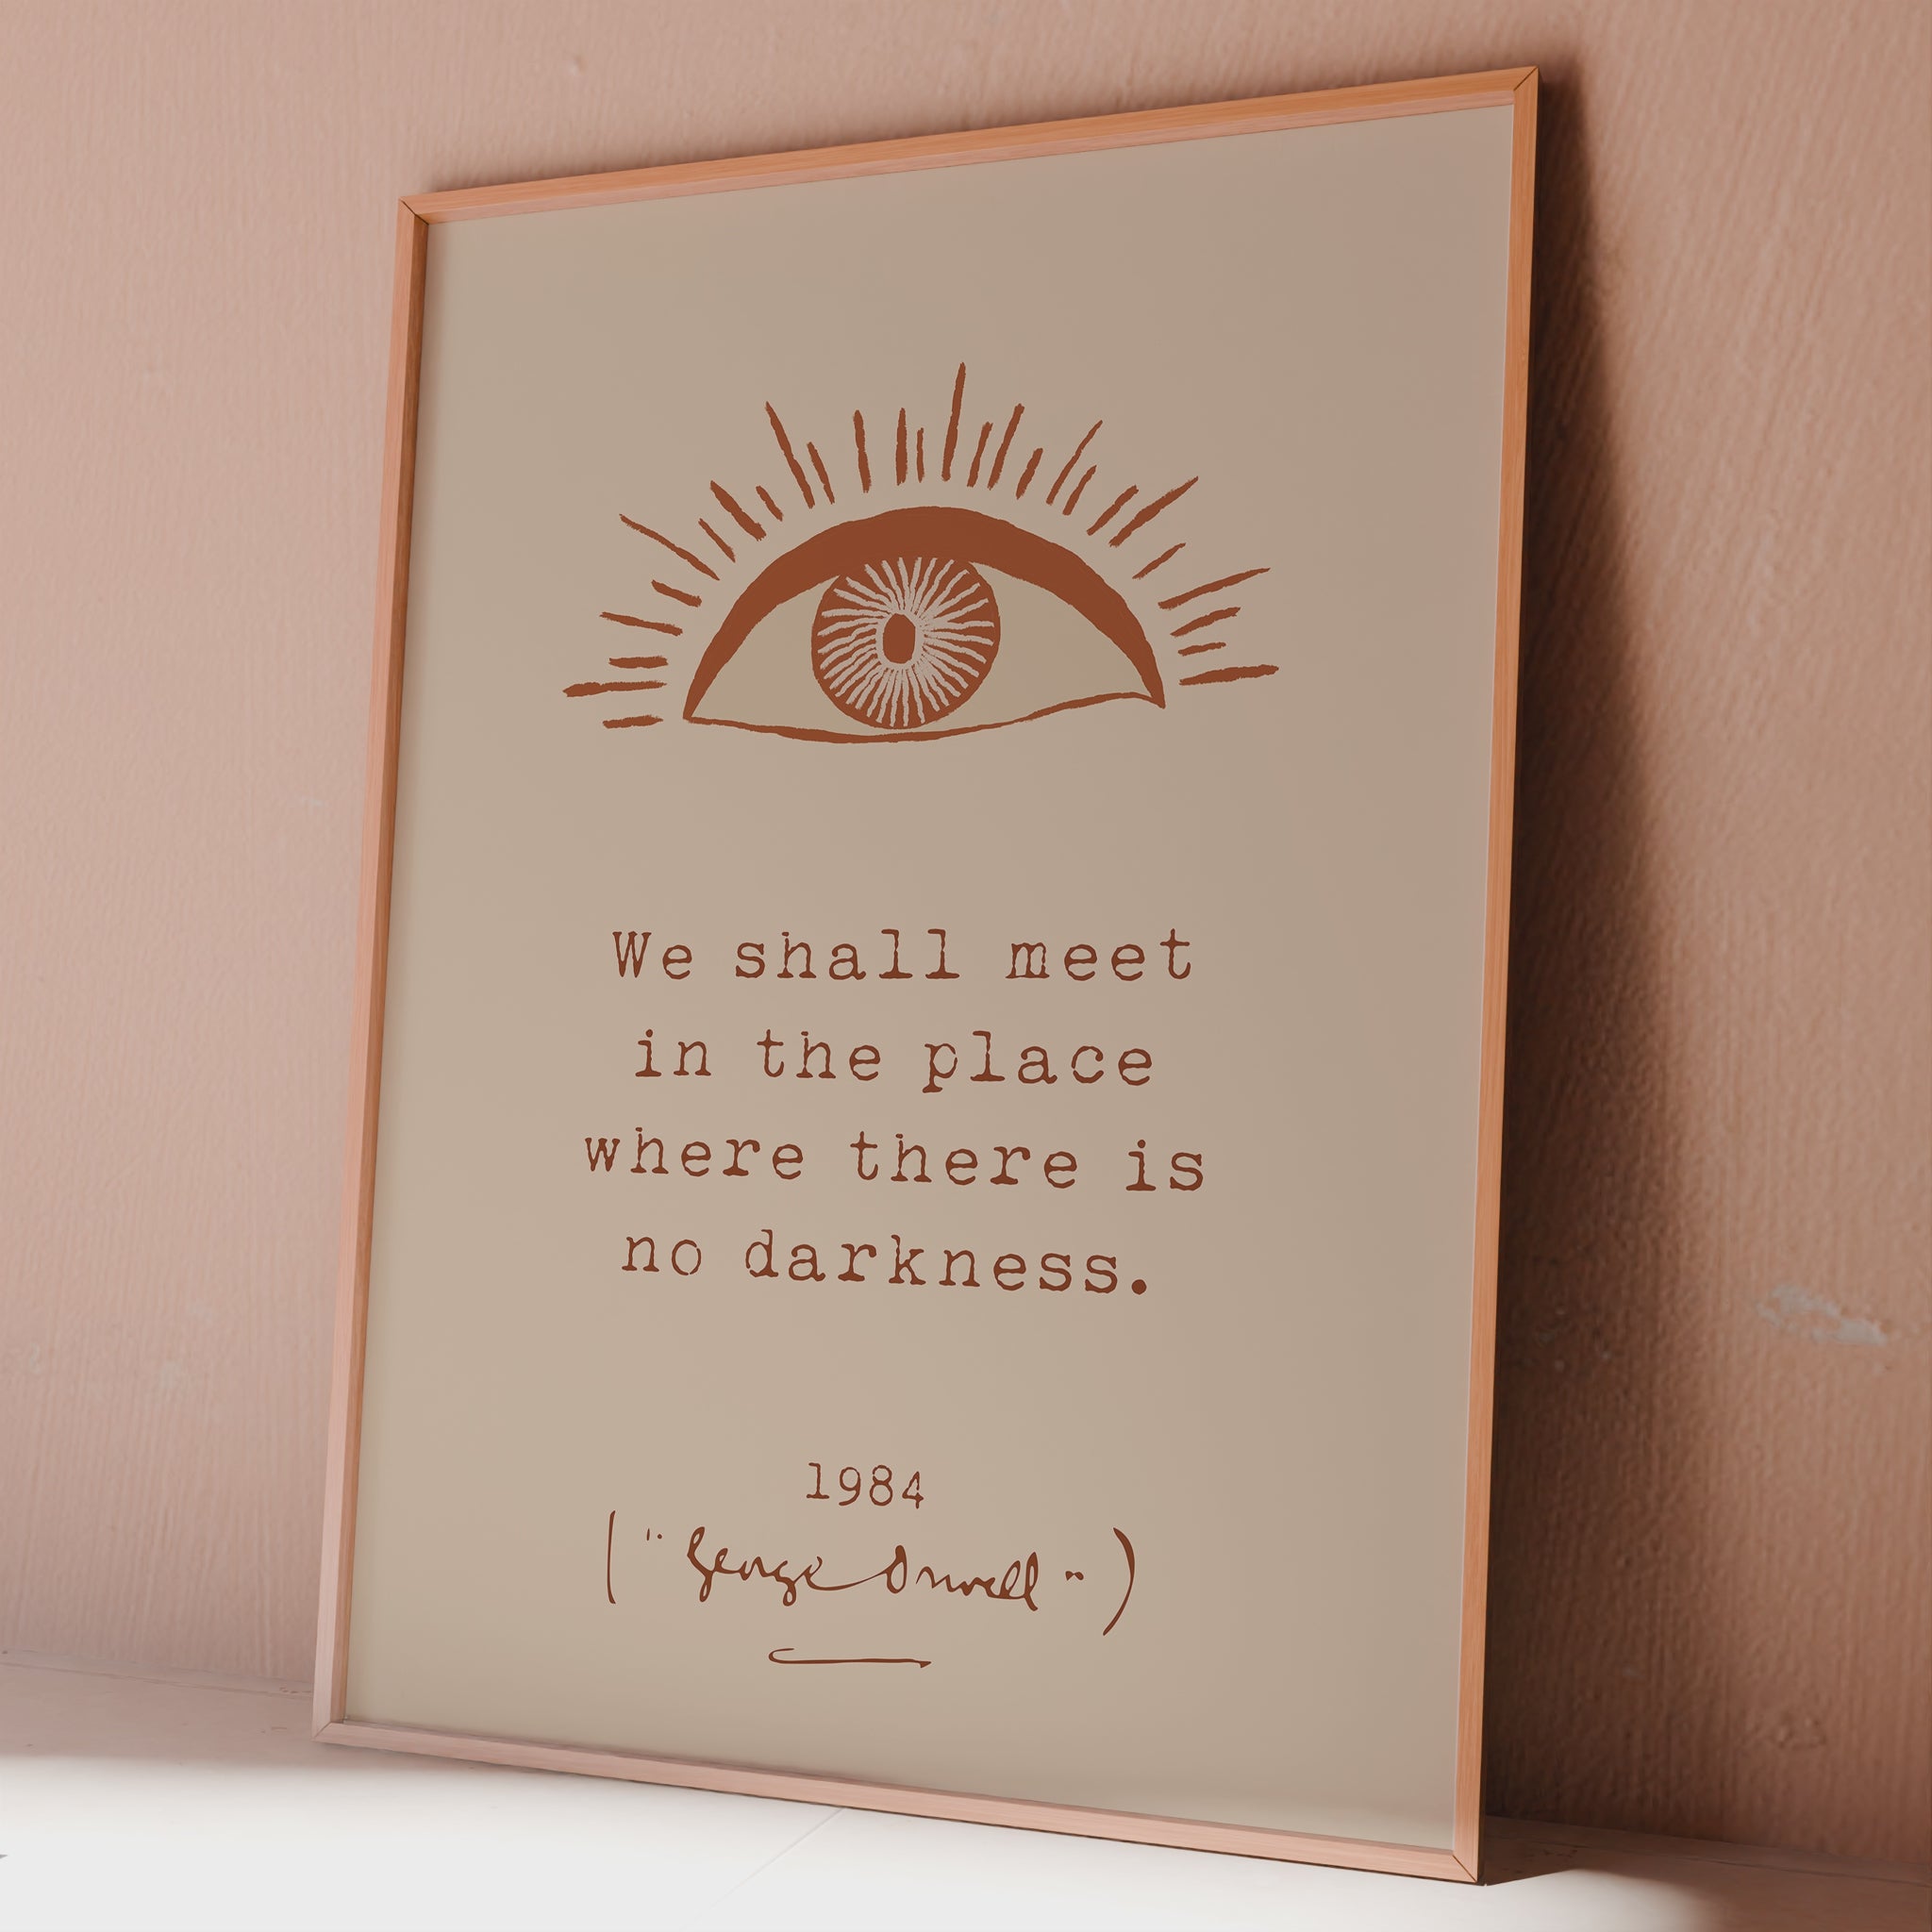 We shall meet
in the place
where there is
no darkness.
1984
("George Orwell")